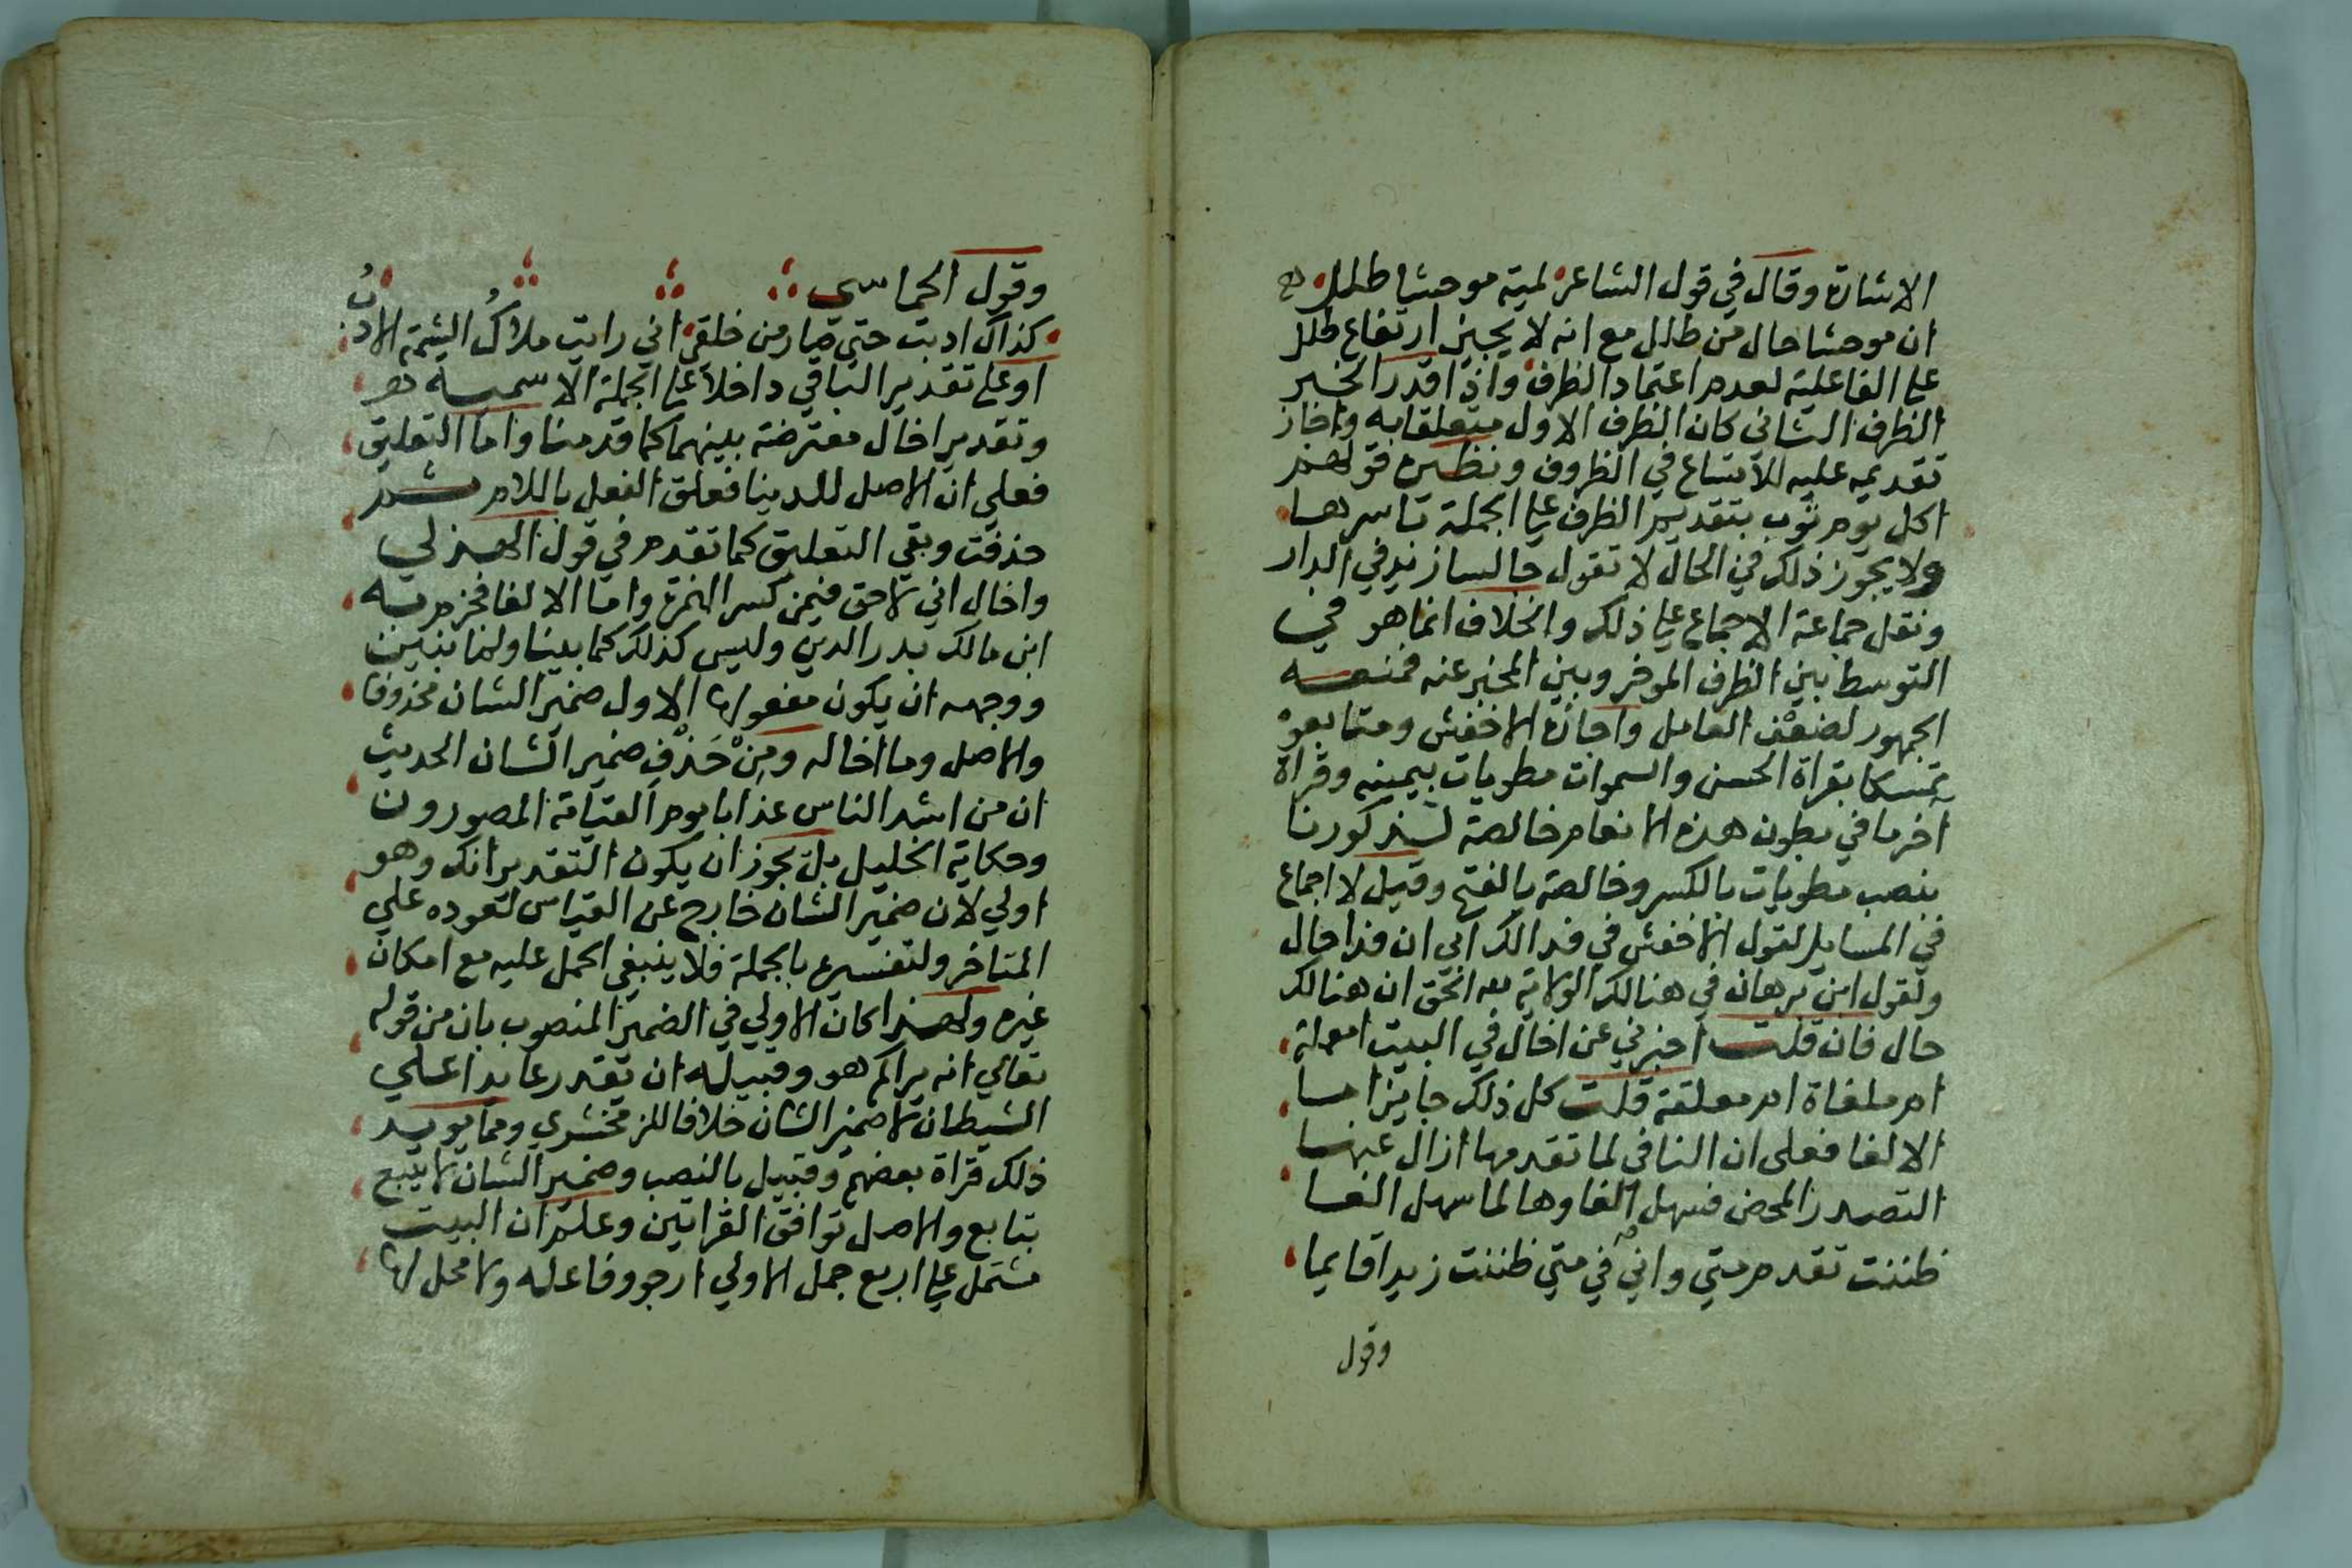 الاشارة وقال في قول الشاعر لمية موحشا طلل
ان موحشا حال من طلل مع انه لا يجيز ارتفاع طلل
علي الفاعلية لعدم اعتماد الظرف واذا قدر الخبر
الظرف الثاني كان الظرف الاول متعلقا به واجاز
تقديمه عليه للاتساع في الظروف ونظيره قولهم
اكل يوم ثوب بتقديم الظرف علي الجملة باسرها
ولا يجوز ذلك في الحال لا تقول جالسا زيد في الدار
ونقل جماعة الاجماع علي ذلك والخلاف انما هو في
التوسط بين الظرف الموخر وبين المخبر عنه فمنعه
الجمهور لضعف العامل واجازه الاخفش ومتابعوه
تمسكا بقراة الحسن والسموات مطويات بيمينه وقراة
آخر ما في بطون هذه الانعام خالصة لذكورنا
بنصب مطويات بالكسر وخالصة بالفتح وقيل لا اجماع
في المسايل لقول الاخفش في فدا لك ابي ان فدا حال
ولقول ابن برهان في هنالك الولاية لله الحق ان هنالك
حال فان قلت اخبرني عن اخال في البيت امعملة
ام ملغاة ام معلقة قلت كل ذلك جايز اما
الالغا فعلى ان النافي لما تقدمها ازال عنها
التصدر المحض فسهل الغاوها لما سهل الغا
ظننت تقدم متي واني في متي ظننت زيدا قايما
وقول
وقول الحماسي
كذاك ادبت حتي صار من خلقي اني رايت ملاك الشيمة الادب
او علي تقدير الباقي داخلا علي الجملة الاسمية
وتقدير اخال معترضة بينهما كما قدمنا واما التعليق
فعلي ان الاصل للدينا فعلق الفعل باللام ثم
حذفت وبقي التعليق كما تقدم في قول الهذلي
واخال اني لاحق فيمن كسر الهمزة واما الالغا فجزم به
ابن مالك بدر الدين وليس كذلك كما بينا ولما نبين
ووجهه ان يكون مفعولها الاول ضمير الشان محذوفا
والاصل وما اخاله ومن حَذْفِ ضمير الشان الحديث
ان من اشد الناس عذابا يوم القيامة المصورون
وحكاية الخليل بك يجوز ان يكون التقدير انك وهو
اولي لان ضمير الشان خارج عن القياس لعوده علي
المتاخر ولتفسيره بالجملة فلا ينبغي الحمل عليه مع امكان
غيره ولهذا كان الاولي في الضمير المنصوب بان من قوله
تعالي انه يراكم هو وقبيله ان يقدر عايدا علي
الشيطان لا ضمير الشان خلافا للزمخشري ومما يويد
ذلك قراة بعضهم وقبيله بالنصب وضمير الشان لا يتبع
بتابع والاصل توافق القراتين وعلم ان البيت
مشتمل علي اربع جمل الاولي ارجو وفاعله ولا محل لها